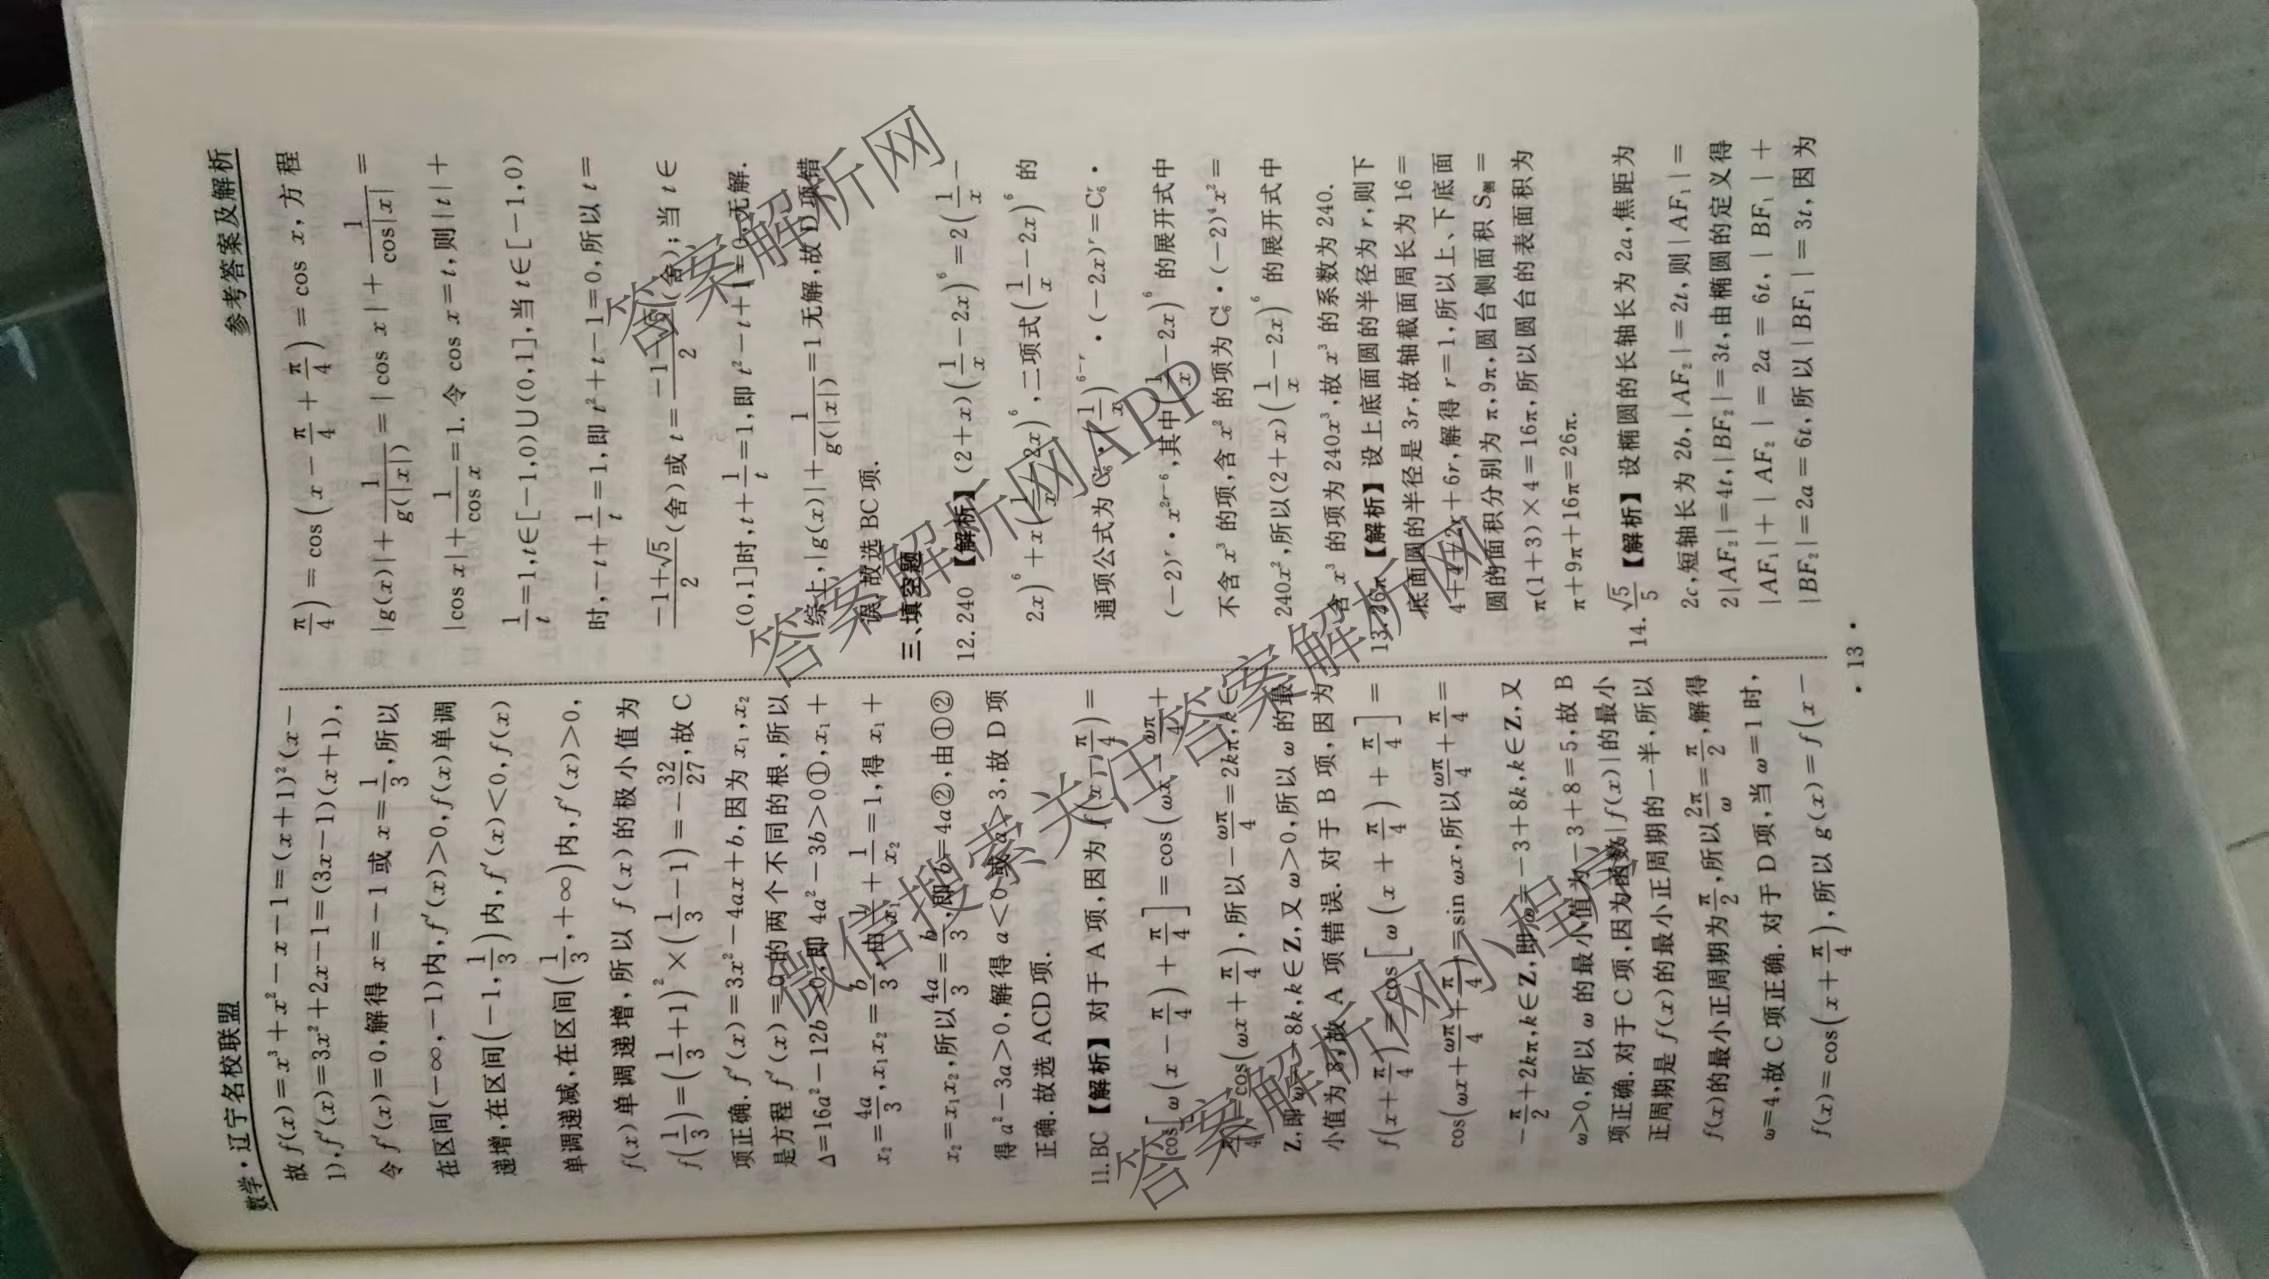 数学·辽宁名校联盟
参考答案及解析
故 f(x)=x³+x²-x-1=(x+1)²(x-
1),f′(x)=3x²+2x-1=(3x-1)(x+1),
令 f′(x)=0,解得 x=-1 或 x=1/3,所以
在区间(-∞,-1)内,f′(x)>0,f(x)单调
递增,在区间(-1,1/3)内,f′(x)<0,f(x)
单调递减,在区间(1/3,+∞)内,f′(x)>0,
f(x)单调递增,所以 f(x)的极小值为
f(1/3)=(1/3+1)²×(1/3-1)=-32/27,故 C
项正确.f′(x)=3x²-4ax+b,因为 x₁,x₂
是方程 f′(x)=0 的两个不同的根,所以
Δ=16a²-12b>0,即 4a²-3b>0①,x₁+
x₂=4a/3,x₁x₂=b/3,由1/x₁+1/x₂=1,得 x₁+
x₂=x₁x₂,所以4a/3=b/3,即 b=4a②,由①②
得 a²-3a>0,解得 a<0 或 a>3,故 D 项
正确.故选 ACD 项.
11.BC 【解析】对于 A 项,因为 f(x-π/4)=
cos[ω(x-π/4)+π/4]=cos(ωx-ωπ/4+
π/4)=cos(ωx+π/4),所以-ωπ/4=2kπ,k∈
Z,即 ω=-8k,k∈Z,又 ω>0,所以 ω 的最
小值为 8,故 A 项错误.对于 B 项,因为
f(x+π/4)=cos[ω(x+π/4)+π/4]=
cos(ωx+ωπ/4+π/4)=sin ωx,所以ωπ/4+π/4=
-π/2+2kπ,k∈Z,即ω=-3+8k,k∈Z,又
ω>0,所以 ω 的最小值为-3+8=5,故 B
项正确.对于 C 项,因为函数|f(x)|的最小
正周期是 f(x)的最小正周期的一半,所以
f(x)的最小正周期为π/2,所以2π/ω=π/2,解得
ω=4,故 C 项正确.对于 D 项,当 ω=1 时,
f(x)=cos(x+π/4),所以 g(x)=f(x-
π/4)=cos(x-π/4+π/4)=cos x,方程
|g(x)|+1/g(|x|)=|cos x|+1/cos|x|=
|cos x|+1/cos x=1.令 cos x=t,则|t|+
1/t=1,t∈[-1,0)∪(0,1],当 t∈[-1,0)
时,-t+1/t=1,即 t²+t-1=0,所以 t=
(-1+√5)/2(舍)或 t=(-1-√5)/2(舍);当 t∈
(0,1]时,t+1/t=1,即 t²-t+1=0,无解.
综上,|g(x)|+1/g(|x|)=1无解,故 D 项错
误.故选 BC 项.
三、填空题
12.240 【解析】(2+x)(1/x-2x)⁶=2(1/x-
2x)⁶+x(1/x-2x)⁶,二项式(1/x-2x)⁶的
通项公式为 C₆ʳ·(1/x)⁶⁻ʳ·(-2x)ʳ=C₆ʳ·
(-2)ʳ·x²ʳ⁻⁶,其中(1/x-2x)⁶的展开式中
不含 x³ 的项,含 x² 的项为 C₆⁴·(-2)⁴x²=
240x²,所以(2+x)(1/x-2x)⁶的展开式中
含 x³ 的项为 240x³,故 x³ 的系数为 240.
13.26π 【解析】设上底面圆的半径为 r,则下
底面圆的半径是 3r,故轴截面周长为 16=
4+4+2r+6r,解得 r=1,所以上、下底面
圆的面积分别为 π,9π,圆台侧面积 S侧=
π(1+3)×4=16π,所以圆台的表面积为
π+9π+16π=26π.
14.√5/5 【解析】设椭圆的长轴长为 2a,焦距为
2c,短轴长为 2b,|AF₂|=2t,则|AF₁|=
2|AF₂|=4t,|BF₂|=3t,由椭圆的定义得
|AF₁|+|AF₂|=2a=6t,|BF₁|+
|BF₂|=2a=6t,所以|BF₁|=3t,因为
·13·
答案解析网
答案解析网APP
微信搜索关注答案解析网
答案解析网小程序